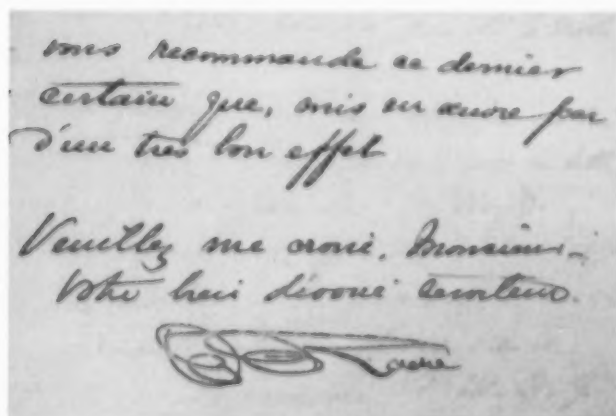 vous recommande ce dernier
certain que, mis en œuvre par
d'un très bon effet
Veuillez me croire, Monsieur,
Votre bien dévoué serviteur.